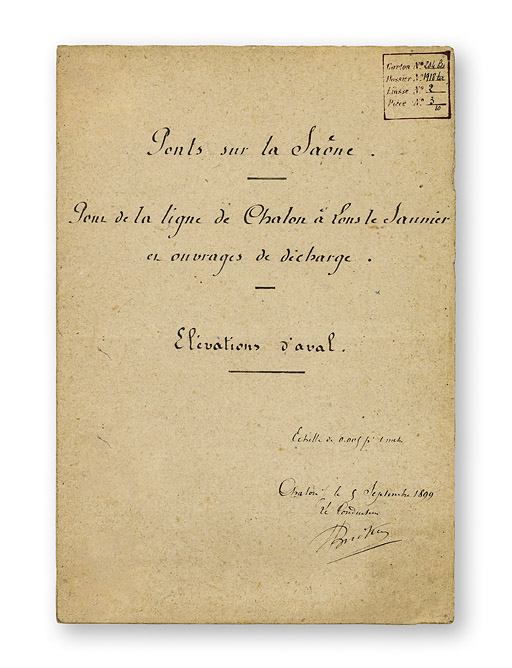 Carton N° 214 bis
Dossier N° 1918 bis
Liasse N° 2
Pièce N° 3/10
Ponts sur la Saône.
Pont de la ligne de Chalon à Lons le Saunier
et ouvrages de décharge.
Elévations d'aval.
Echelle de 0.005 pr 1 mètre
Chalon, le 5 Septembre 1899
Le Conducteur